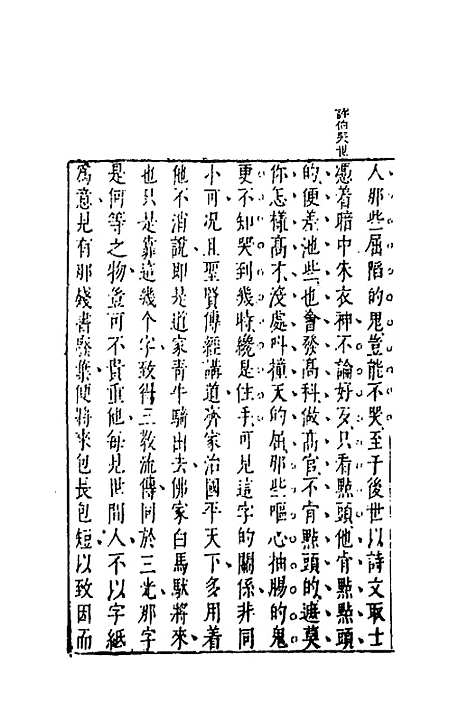 詠伯哭世
人那些屈陷的鬼豈能不哭至于後世以詩文取士
憑着暗中朱衣神不論好歹只看點頭他肯點點頭
的便差池些也會發高科做高官不肯點頭的遮莫
你怎樣高才沒處叫撞天的屈那些嘔心抽腸的鬼
更不知哭到幾時纔是住手可見這字的關係非同
小可況且聖賢傳經講道齊家治國平天下多用着
他不消說即是道家青牛騎出去佛家白馬馱將來
也只是靠這幾个字致得三教流傳同於三光那字
是何等之物豈可不貴重他每見世間人不以字紙
爲意見有那殘書廢葉便將來包長包短以致因而